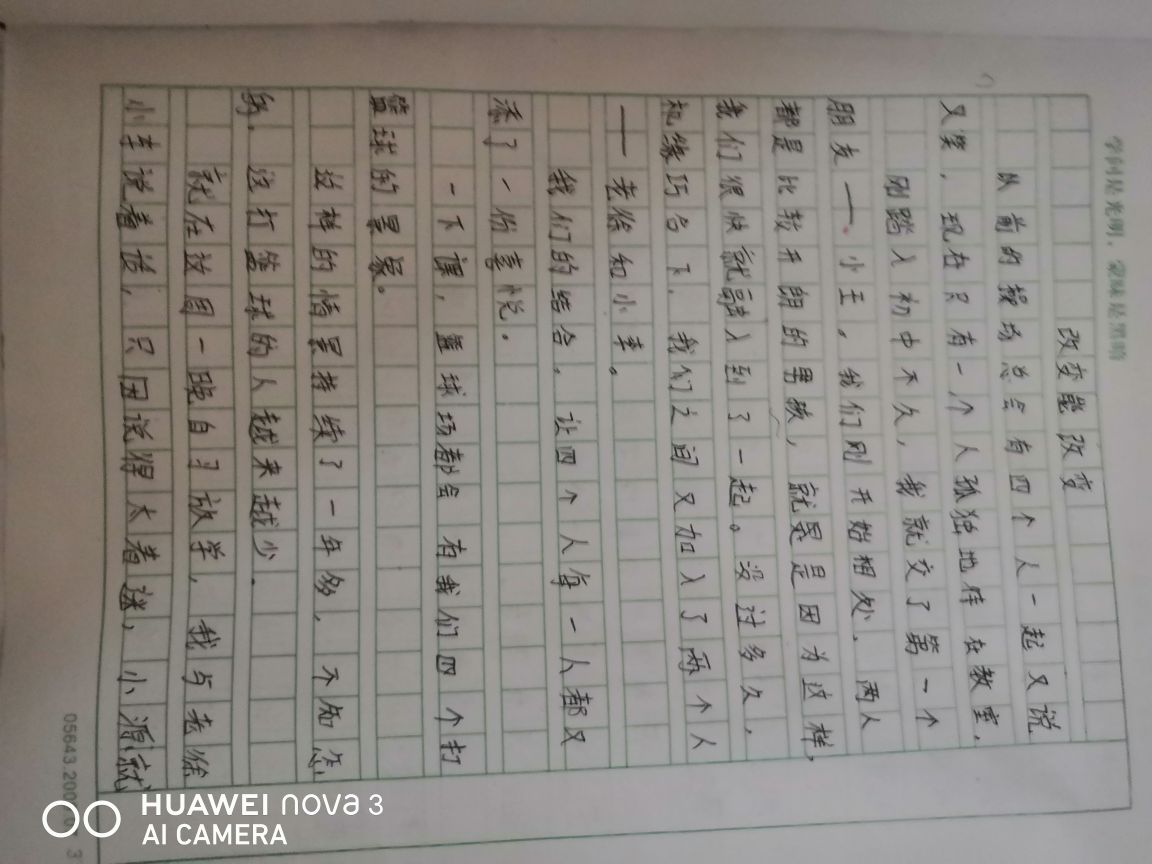 学问是光明，蒙昧是黑暗
改变能改变
从前的操场总会有四个人一起又说
又笑，现在只有一个人孤独地待在教室，
刚踏入初中不久，我就交了第一个
朋友——小王。我们刚开始相处，两人
都是比较开朗的男孩，就是是因为这样，
我们很快就融入到了一起。没过多久，
机缘巧合下，我们之间又加入了两个人
——老徐和小李。
我们的结合，让四个人每一人都又
添了一份喜悦。
一下课，篮球场都会有我们四个打
篮球的景象。
这样的情景持续了一年多，不知怎
么，没打篮球的人越来越少．
就在这周一晚自习放学，我与老徐
小李说着话，只因说得太着迷，小源就
05643.200
HUAWEI nova 3
AI CAMERA